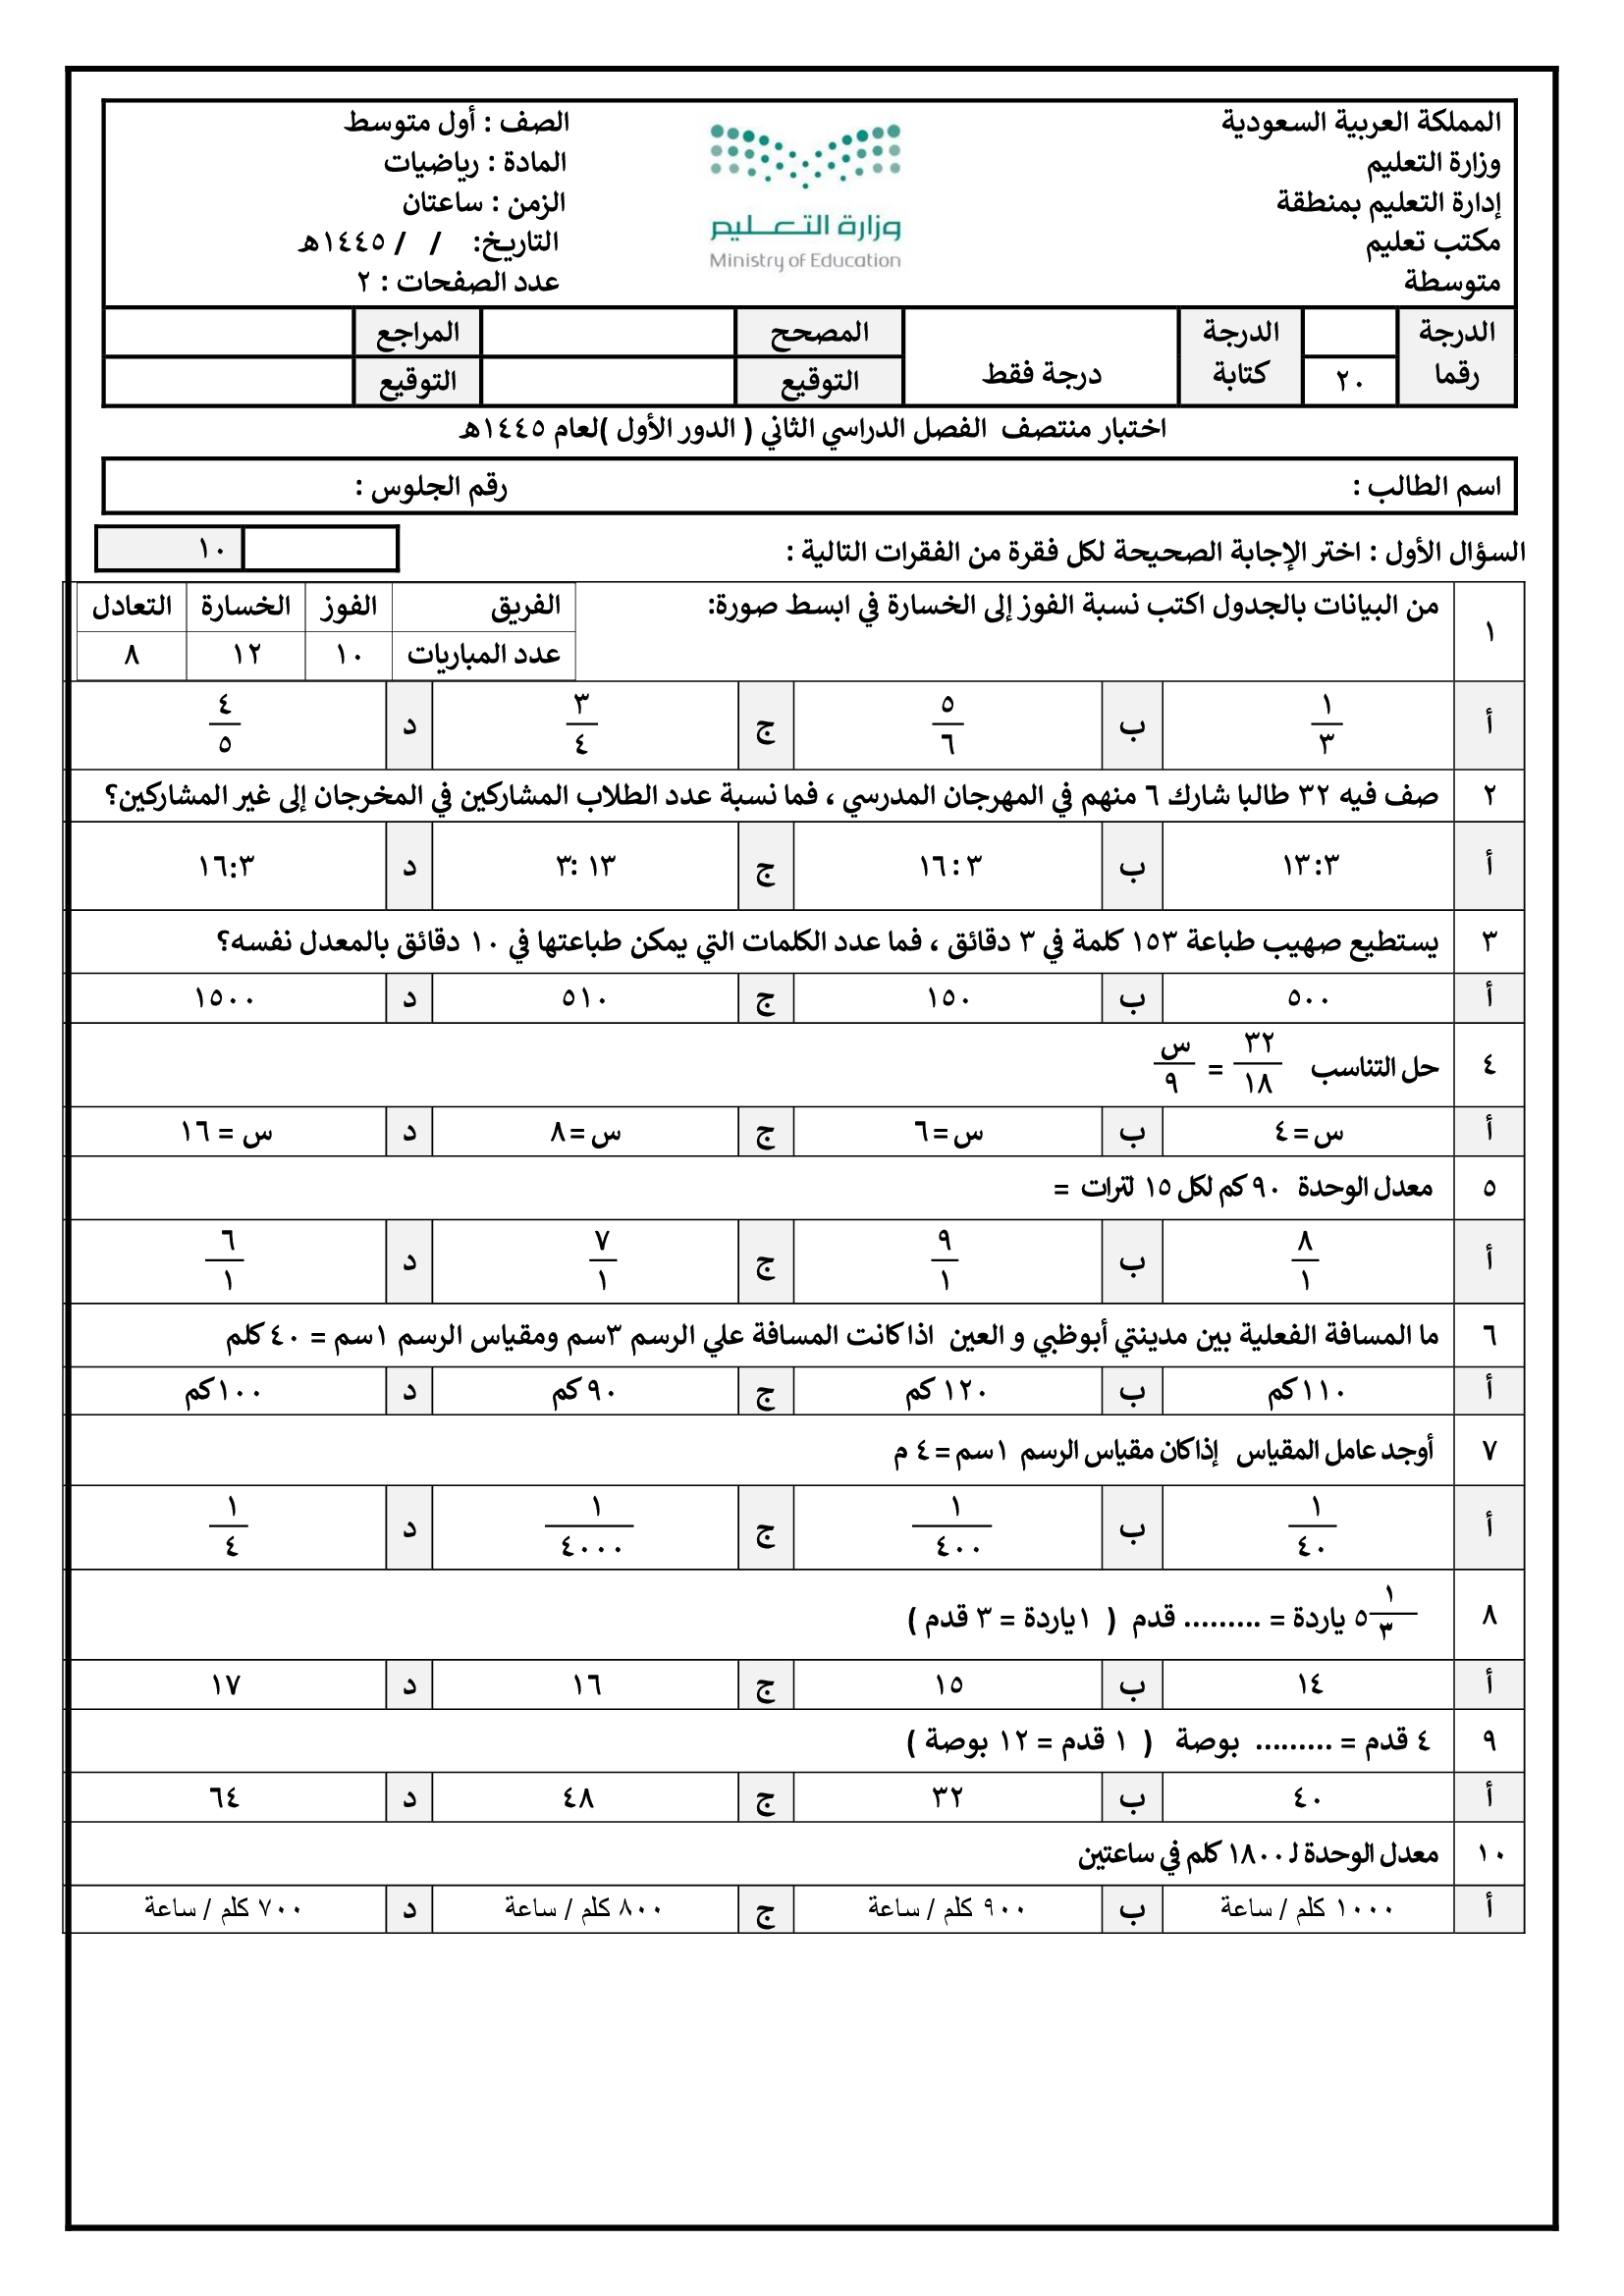 المملكة العربية السعودية
وزارة التعليم
إدارة التعليم بمنطقة
مكتب تعليم
متوسطة
وزارة التعليم
Ministry of Education
الصف : أول متوسط
المادة : رياضيات
الزمن : ساعتان
التاريخ: / / ١٤٤٥هـ
عدد الصفحات : ٢
الدرجة رقما ٢٠ الدرجة كتابة درجة فقط المصحح المراجع
التوقيع التوقيع
اختبار منتصف الفصل الدراسي الثاني ( الدور الأول )لعام ١٤٤٥هـ
اسم الطالب : رقم الجلوس :
السؤال الأول : اختر الإجابة الصحيحة لكل فقرة من الفقرات التالية : ١٠
١ من البيانات بالجدول اكتب نسبة الفوز إلى الخسارة في ابسط صورة:
الفريق الفوز الخسارة التعادل
عدد المباريات ١٠ ١٢ ٨
أ ١/٣ ب ٥/٦ ج ٣/٤ د ٤/٥
٢ صف فيه ٣٢ طالبا شارك ٦ منهم في المهرجان المدرسي ، فما نسبة عدد الطلاب المشاركين في المخرجان إلى غير المشاركين؟
أ ١٣:٣ ب ٣ : ١٦ ج ١٣ :٣ د ١٦:٣
٣ يستطيع صهيب طباعة ١٥٣ كلمة في ٣ دقائق ، فما عدد الكلمات التي يمكن طباعتها في ١٠ دقائق بالمعدل نفسه؟
أ ٥٠٠ ب ١٥٠ ج ٥١٠ د ١٥٠٠
٤ حل التناسب ٣٢/١٨ = س/٩
أ س = ٤ ب س = ٦ ج س = ٨ د س = ١٦
٥ معدل الوحدة ٩٠ كم لكل ١٥ لترات =
أ ٨/١ ب ٩/١ ج ٧/١ د ٦/١
٦ ما المسافة الفعلية بين مدينتي أبوظبي و العين اذا كانت المسافة علي الرسم ٣سم ومقياس الرسم ١سم = ٤٠ كلم
أ ١١٠ كم ب ١٢٠ كم ج ٩٠ كم د ١٠٠ كم
٧ أوجد عامل المقياس إذا كان مقياس الرسم ١سم = ٤ م
أ ١/٤٠ ب ١/٤٠٠ ج ١/٤٠٠٠ د ١/٤
٨ ٥ ١/٣ ياردة = ......... قدم ( ١ياردة = ٣ قدم )
أ ١٤ ب ١٥ ج ١٦ د ١٧
٩ ٤ قدم = ......... بوصة ( ١ قدم = ١٢ بوصة )
أ ٤٠ ب ٣٢ ج ٤٨ د ٦٤
١٠ معدل الوحدة لـ ١٨٠٠ كلم في ساعتين
أ ١٠٠٠ كلم / ساعة ب ٩٠٠ كلم / ساعة ج ٨٠٠ كلم / ساعة د ٧٠٠ كلم / ساعة